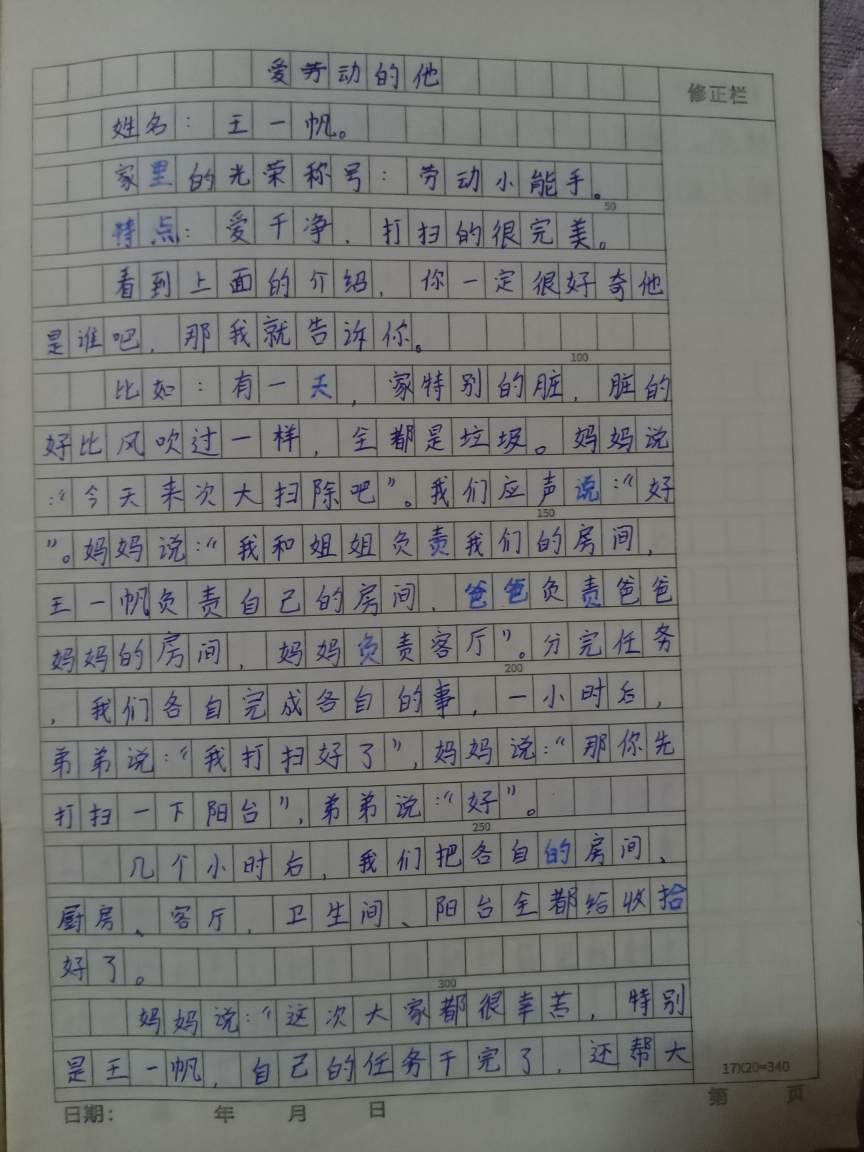 爱劳动的他
修正栏
姓名：王一帆。
家里的光荣称号：劳动小能手。
50
特点：爱干净，打扫的很完美。
看到上面的介绍，你一定很好奇他
是谁吧，那我就告诉你。
100
比如：有一天，家特别的脏，脏的
好比风吹过一样，全都是垃圾。妈妈说
：“今天来次大扫除吧”。我们应声说：“好
150
”。妈妈说：“我和姐姐负责我们的房间，
王一帆负责自己的房间，爸爸负责爸爸
妈妈的房间，妈妈负责客厅”。分完任务
200
，我们各自完成各自的事，一小时后，
弟弟说：“我打扫好了”，妈妈说：“那你先
打扫一下阳台”，弟弟说：“好”。
250
几个小时后，我们把各自的房间、
厨房、客厅、卫生间、阳台全都给收拾
好了。
300
妈妈说：“这次大家都很幸苦，特别
是王一帆，自己的任务干完了，还帮大
17X20=340
日期： 年 月 日 第 页